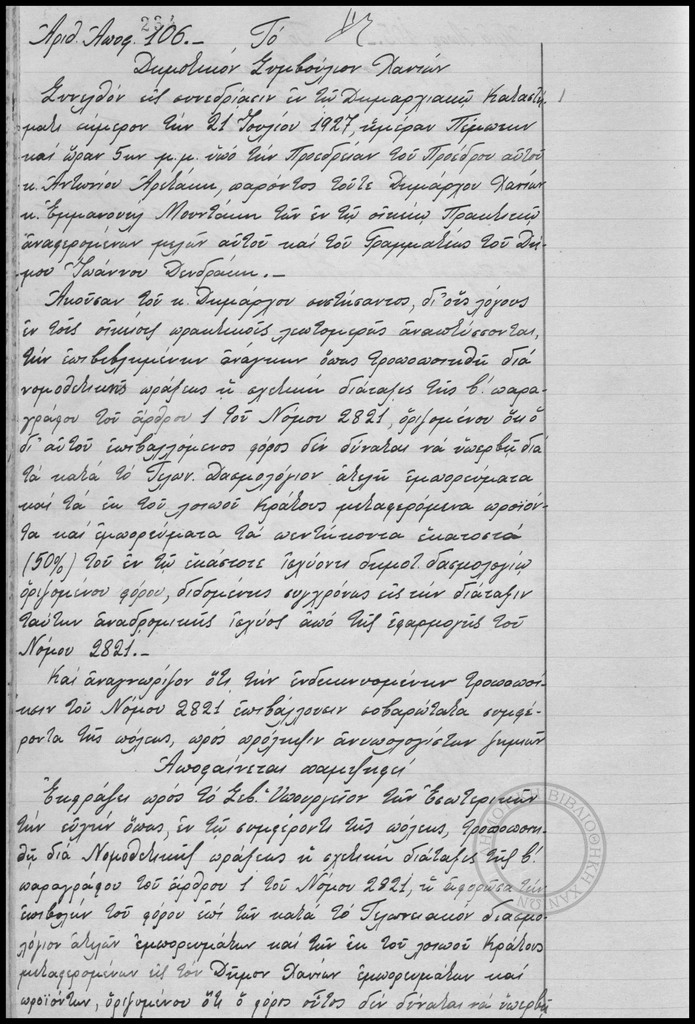 Ἀριθ. Ἀποφ. 106.- Τό
Δημοτικόν Συμβούλιον Χανίων
Συνελθόν εἰς συνεδρίασιν ἐν τῷ Δημαρχιακῷ Καταστή-
ματι σήμερον τήν 21 Ἰουλίου 1927, ἡμέραν Πέμπτην
καί ὥραν 5ην μ.μ. ὑπό τήν Προεδρείαν τοῦ Προέδρου αὐτοῦ
κ. Ἀντωνίου παρόντος τοῦτε Δημάρχου Χανίων
κ. Ἐμμανουήλ Μουντάκη τῶν ἐν τῷ οἰκείῳ Πρακτικῷ
ἀναφερομένων μελῶν αὐτοῦ καί τοῦ Γραμματέως τοῦ Δή-
μου Ἰωάννου Δενδράκη.-
Ἀκοῦσαν τοῦ κ. Δημάρχου συστήσαντος, δι' οὕς λόγους
ἐν τοῖς οἰκείοις πρακτικοῖς λεπτομερῶς ἀναπτύσσονται,
τήν ἐπιβεβλημένην ἀνάγκην ὅπως τροποποιηθῇ διά
νομοθετικῆς πράξεως ἡ σχετική διάταξις τῆς β'. παρα-
γράφου τοῦ ἄρθρου 1 τοῦ Νόμου 2821, ὁριζομένου ὅτι ὁ
δι' αὐτοῦ ἐπιβαλλόμενος φόρος δέν δύναται νά ὑπερβῇ διά
τά κατά τό Τελων. Δασμολόγιον ἀτελῆ ἐμπορεύματα
καί τά ἐκ τοῦ λοιποῦ Κράτους μεταφερόμενα προϊόν-
τα καί ἐμπορεύματα τά πεντήκοντα ἑκατοστά
(50%) τοῦ ἐν τῷ ἑκάστοτε ἰσχύοντι δημοτ. δασμολογίῳ
ὁριζομένου φόρου, διδομένης συγχρόνως εἰς τήν διάταξιν
ταύτην ἀναδρομικῆς ἰσχύος ἀπό τῆς ἐφαρμογῆς τοῦ
Νόμου 2821.-
Καί ἀναγνωρίζον ὅτι τήν ἐνδεικνυομένην τροποποί-
ησιν τοῦ Νόμου 2821 ἐπιβάλλουσιν σοβαρώτατα συμφέ-
ροντα τῆς πόλεως, πρός πρόληψιν ἀνυπολογίστων ζημιῶν
Ἀποφαίνεται παμψηφεί
Ἐκφράζει πρός τό Σεβ. Ὑπουργεῖον τῶν Ἐσωτερικῶν
τήν εὐχήν ὅπως, ἐν τῷ συμφέροντι τῆς πόλεως, τροποποιη-
θῇ διά Νομοθετικῆς πράξεως ἡ σχετική διάταξις τῆς β'.
παραγράφου τοῦ ἄρθρου 1 τοῦ Νόμου 2821, ἡ ἀφορῶσα τήν
ἐπιβολήν τοῦ φόρου ἐπί τῶν κατά τό Τελωνειακόν δασμο-
λόγιον ἀτελῶν ἐμπορευμάτων καί τῶν ἐκ τοῦ λοιποῦ Κράτους
μεταφερομένων εἰς τόν Δῆμον Χανίων ἐμπορευμάτων καί
προϊόντων, ὁριζομένου ὅτι ὁ φόρος οὗτος δέν δύναται νά ὑπερβῇ